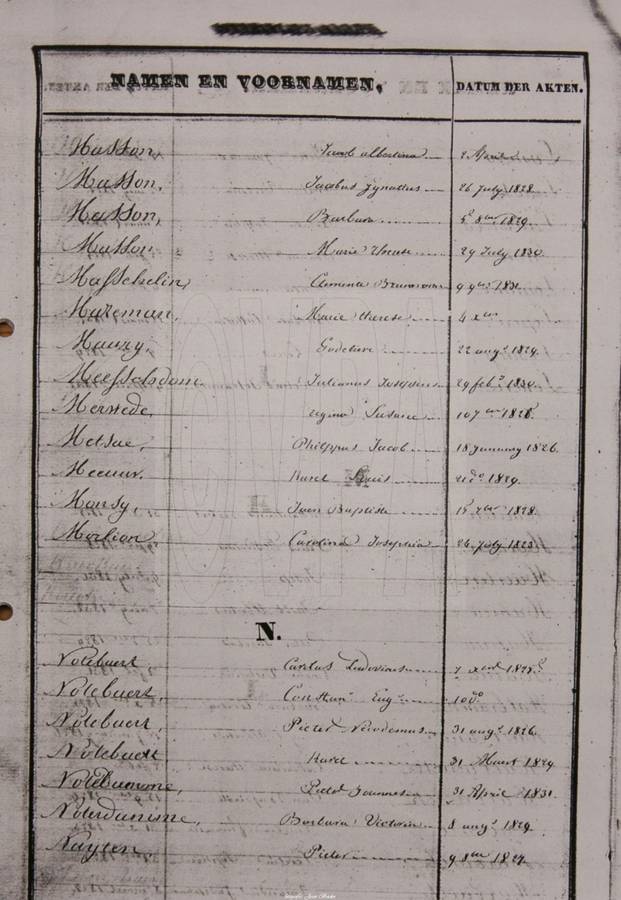 NAMEN EN VOORNAMEN, DATUM DER AKTEN.
Masson, Jacob albertina 2 April
Masson, Jacobus Ignatius 26 July 1828.
Masson, Barbara 1829.
Masson, Marie Therese 29 July 1830.
Masschelin, Clementa 9 1831.
Mazeman, Marie therese 4 xber
Mauzy, Godelieve 22 augs 1829.
Meesschdom Julianus Josephus 29 feb. 1830.
Merstede, regina Susane 10 7ber 1828.
Metsue, Philippus Jacob 18 January 1826.
Karel Louis 21 do 1829.
Monsy, Jean Baptiste 15 xber 1828.
Morlion, Carolina Josephia 24 July 1828.
N.
Notebaert Carolus Ludovicus 7
Notebaert, Constant Eug. 10 do
Notebaert, Pieter Nicodemus 31 augs 1826.
Notebaert Karel 31 Maart 1829
Pieter Joannes 31 April 1831.
Noterdaeme, Barbara Victoria 8 augs 1829.
Nuyten, Pieter 9 8ber 1827.